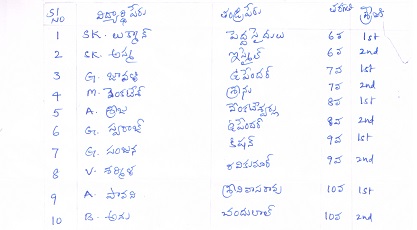 Sl No విద్యార్థి పేరు తండ్రి పేరు తరగతి ర్యాంక్
1 SK. లుక్మాన్ పెద్ద సైదులు 6వ 1st
2 SK. అస్మ ఇస్మైల్ 6వ 2nd
3 G. జానకి ఉపేందర్ 7వ 1st
4 M. వెంకటేశ్ శ్రీను 7వ 2nd
5 A. వెంకటేశ్వర్లు 8వ 1st
6 G. స్వరాజ్ ఉపేందర్ 8వ 2nd
7 G. సంజన కిషన్ 9వ 1st
8 V. శర్మిళ రవికుమార్ 9వ 2nd
9 A. పావని 10వ 1st
10 B. అను చందులాల్ 10వ 2nd